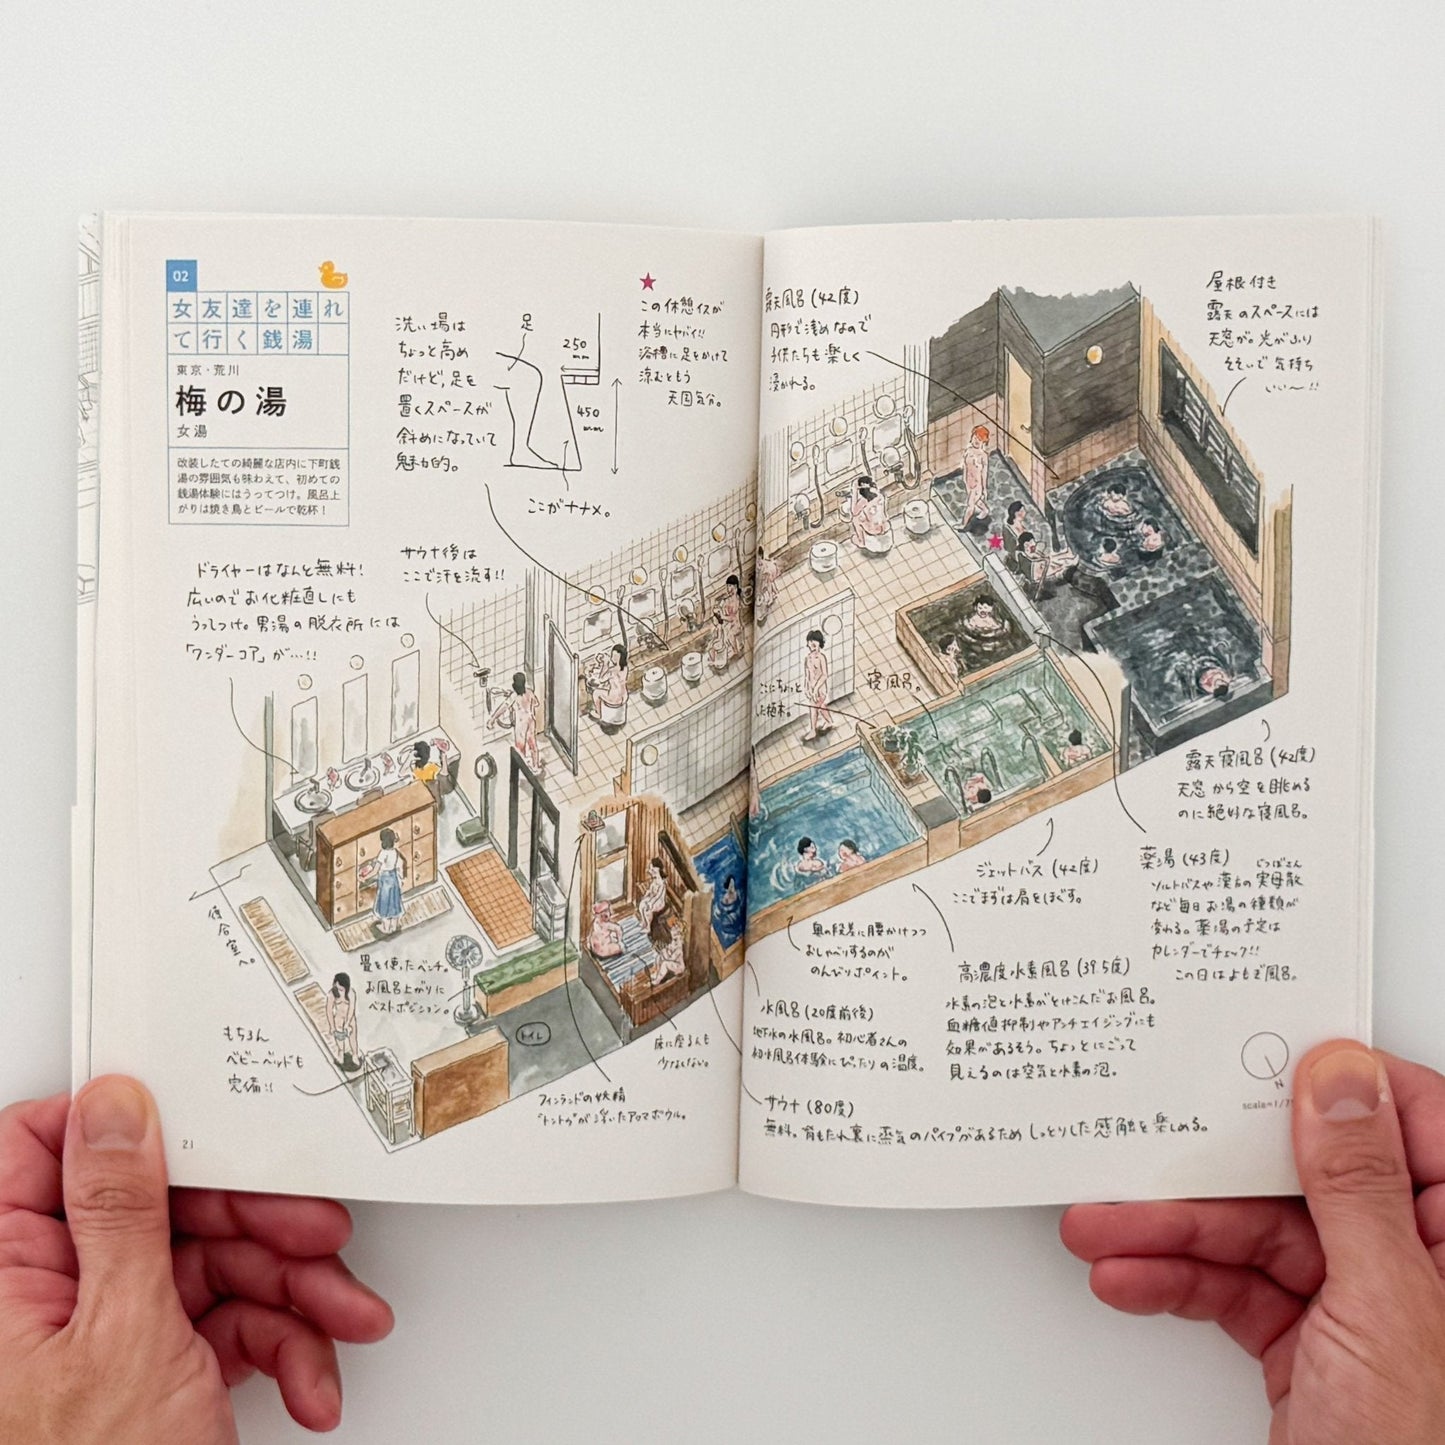 02
女友達を連れ
て行く銭湯
東京・荒川
梅の湯
女湯
改装したての綺麗な店内に下町銭
湯の雰囲気も味わえて、初めての
銭湯体験にはうってつけ。風呂上
がりは焼き鳥とビールで乾杯！
洗い場は
ちょっと高め
だけど、足を
置くスペースが
斜めになっていて
魅力的。
足
250
mm
450
mm
ここがナナメ。
★
この休憩イスが
本当にヤバイ!!
浴槽に足をかけて
涼むともう
天国気分。
ドライヤーはなんと無料！
広いのでお化粧直しにも
うってつけ。男湯の脱衣所には
「ワンダーコア」が…!!
サウナ後は
ここで汗を流す!!
待合室へ。
畳を使ったベンチ。
お風呂上がりに
ベストポジション。
もちろん
ベビーベッドも
完備!!
トイレ
フィンランドの妖精
"トントゥ"が浮いたアロマボウル。
床に座る人も
少なくない。
21
露天風呂(42度)
円形で浅めなので
子供たちも楽しく
浸かれる。
屋根付き
露天のスペースには
天窓が。光がふり
そそいで気持ち
いい〜!!
★
ここにちょっと
した植木。
寝風呂。
露天寝風呂(42度)
天窓から空を眺める
のに絶好な寝風呂。
ジェットバス(42度)
ここでまずは肩をほぐす。
薬湯(43度)
じつぼさん
ソルトバスや漢方の実母散
など毎日お湯の種類が
変わる。薬湯の予定は
カレンダーでチェック!!
この日はよもぎ風呂。
奥の段差に腰かけつつ
おしゃべりするのが
のんびりポイント。
高濃度水素風呂(39.5度)
水素の泡と水素がとけこんだお風呂。
血糖値抑制やアンチエイジングにも
効果があるそう。ちょっとにごって
見えるのは空気と水素の泡。
水風呂(20度前後)
地下水の水風呂。初心者さんの
初水風呂体験にぴったりの温度。
サウナ(80度)
無料。背もたれ裏に蒸気のパイプがあるためしっとりした感触を楽しめる。
N
scale=1/7